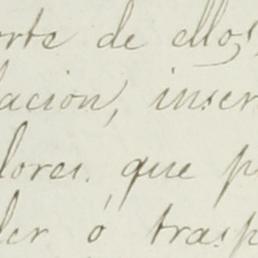 orte de ellos,
lación, inser
lores, que p
der ó trasp